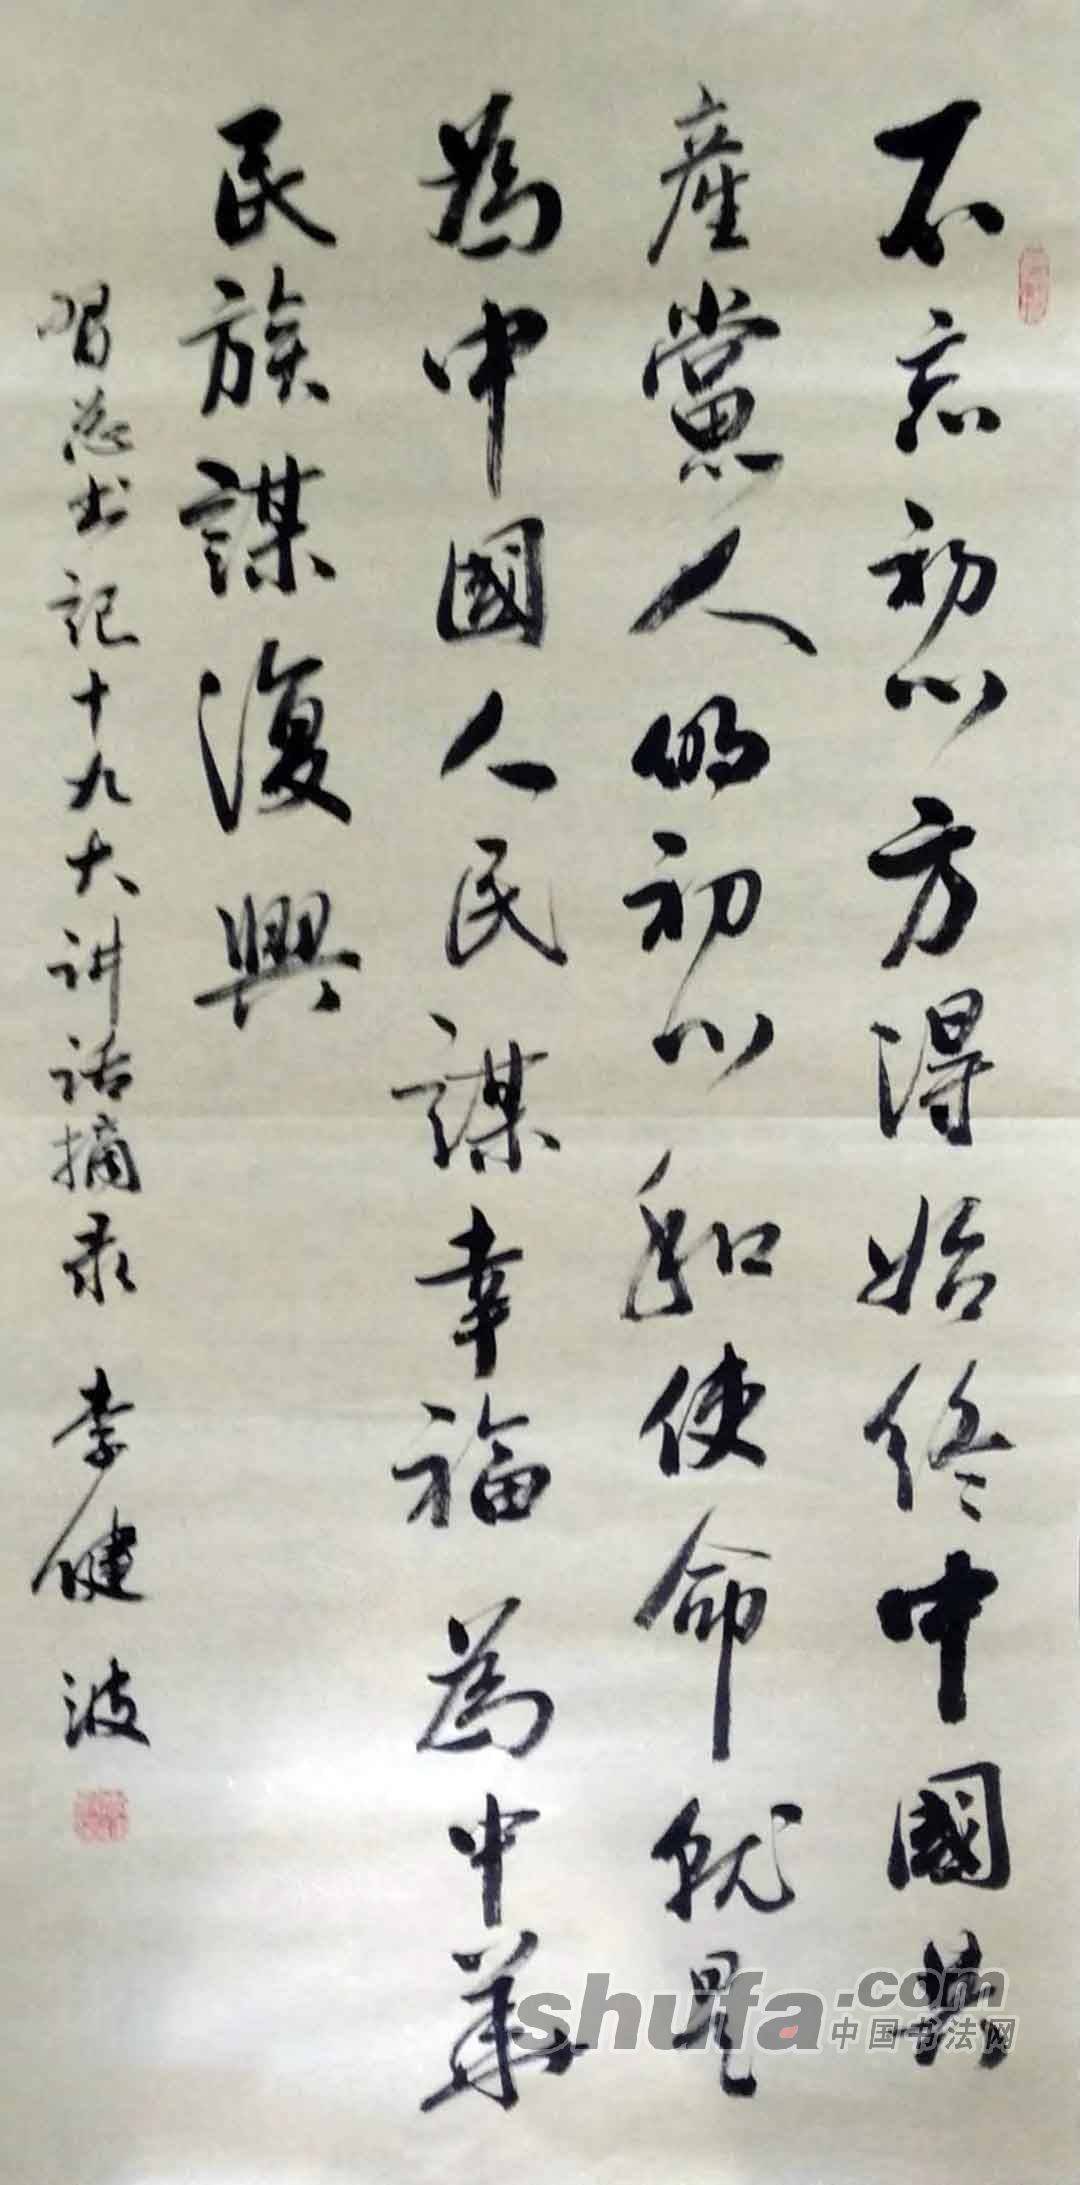 不忘初心方得始终中國共
産黨人的初心和使命就是
為中國人民謀幸福為中華
民族謀復興
習总书記十九大讲话摘录李健波
shufa.com
中国书法网